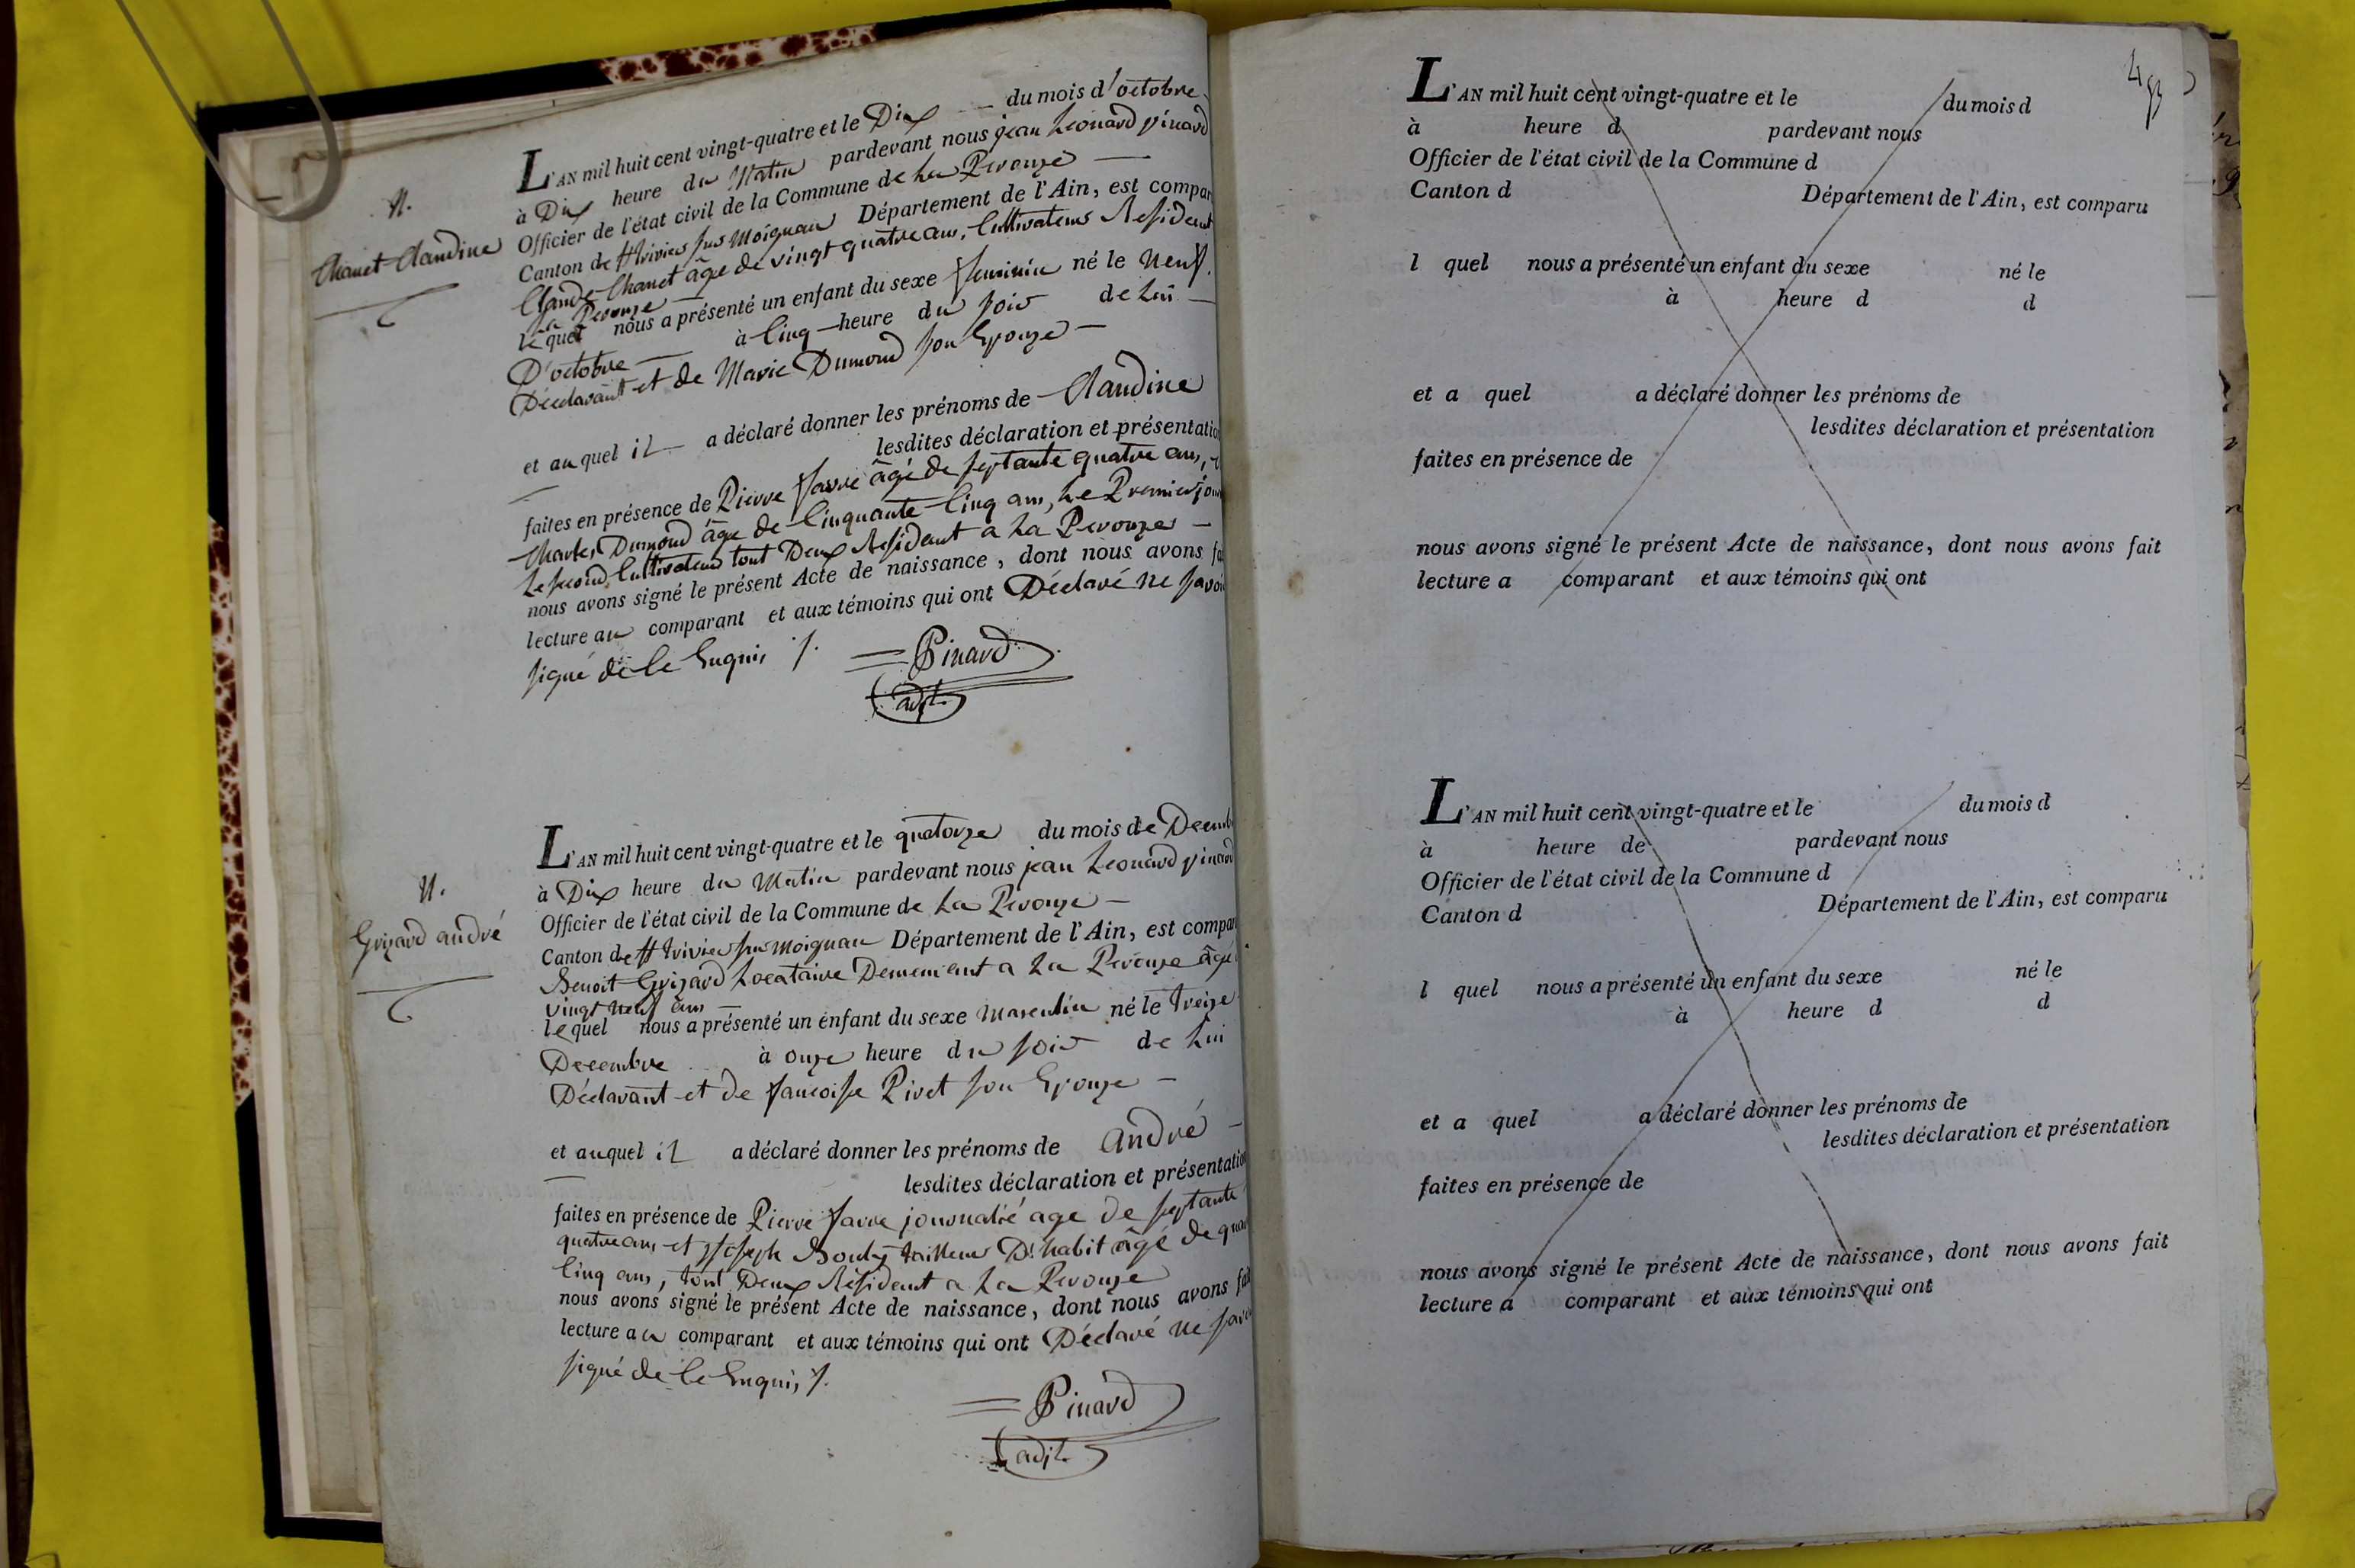 N.
Chanet Claudine
L'AN mil huit cent vingt-quatre et le Dix du mois d'octobre
à Dix heure du Matin pardevant nous jean Leonard pinard
Officier de l'état civil de la Commune de La Perouze
Canton de St trivier sur Moignan Département de l'Ain, est compar
Claude Chanet âge de vingt quatre ans, Cultivateur Résident
La Perouze
le quel nous a présenté un enfant du sexe feminin né le Neuf
D'octobre à Cinq heure du soir de Lui
Déclarant et de Marie Dumond son Epouze
et au quel il a déclaré donner les prénoms de Claudine
lesdites déclaration et présentatio
faites en présence de Pierre favre âgé de septante quatre ans,
Charles Dumond âge de Cinquante Cinq ans, Le Premier jour
Le second Cultivateur tout Deux Résident a La Perouze
nous avons signé le présent Acte de naissance, dont nous avons fa
lecture au comparant et aux témoins qui ont Déclaré ne savoi
signé de Ce Enquis ./.
Pinard
adjt.
N.
Grizard andré
L'AN mil huit cent vingt-quatre et le quatorze du mois de Decemb
à Dix heure du Matin pardevant nous jean Leonard pinard
Officier de l'état civil de la Commune de La Perouze
Canton de St trivier sur moignan Département de l'Ain, est compar
Benoit Grizard Locataire Demeurant a La Perouze âgé
vingt neuf ans
le quel nous a présenté un enfant du sexe Masculin né le treize
Decembre à onze heure du soir de Lui
Déclarant et de francoise Pivet son Epouze
et au quel il a déclaré donner les prénoms de andré
lesdites déclaration et présentatio
faites en présence de Pierre favre journalié age de septante
quatre ans et joseph Bouly tailleur D'habit âgé de qua
Cinq ans, tout Deux Résident a La Perouze
nous avons signé le présent Acte de naissance, dont nous avons fai
lecture au comparant et aux témoins qui ont Déclaré ne savoi
signé de Ce Enquis ./.
Pinard
adjt.
L'AN mil huit cent vingt-quatre et le du mois d
à heure d pardevant nous
Officier de l'état civil de la Commune d
Canton d Département de l'Ain, est comparu
l quel nous a présenté un enfant du sexe né le
à heure d d
et a quel a déclaré donner les prénoms de
lesdites déclaration et présentation
faites en présence de
nous avons signé le présent Acte de naissance, dont nous avons fait
lecture a comparant et aux témoins qui ont
L'AN mil huit cent vingt-quatre et le du mois d
à heure de pardevant nous
Officier de l'état civil de la Commune d
Canton d Département de l'Ain, est comparu
l quel nous a présenté un enfant du sexe né le
à heure d d
et a quel a déclaré donner les prénoms de
lesdites déclaration et présentation
faites en présence de
nous avons signé le présent Acte de naissance, dont nous avons fait
lecture a comparant et aux témoins qui ont